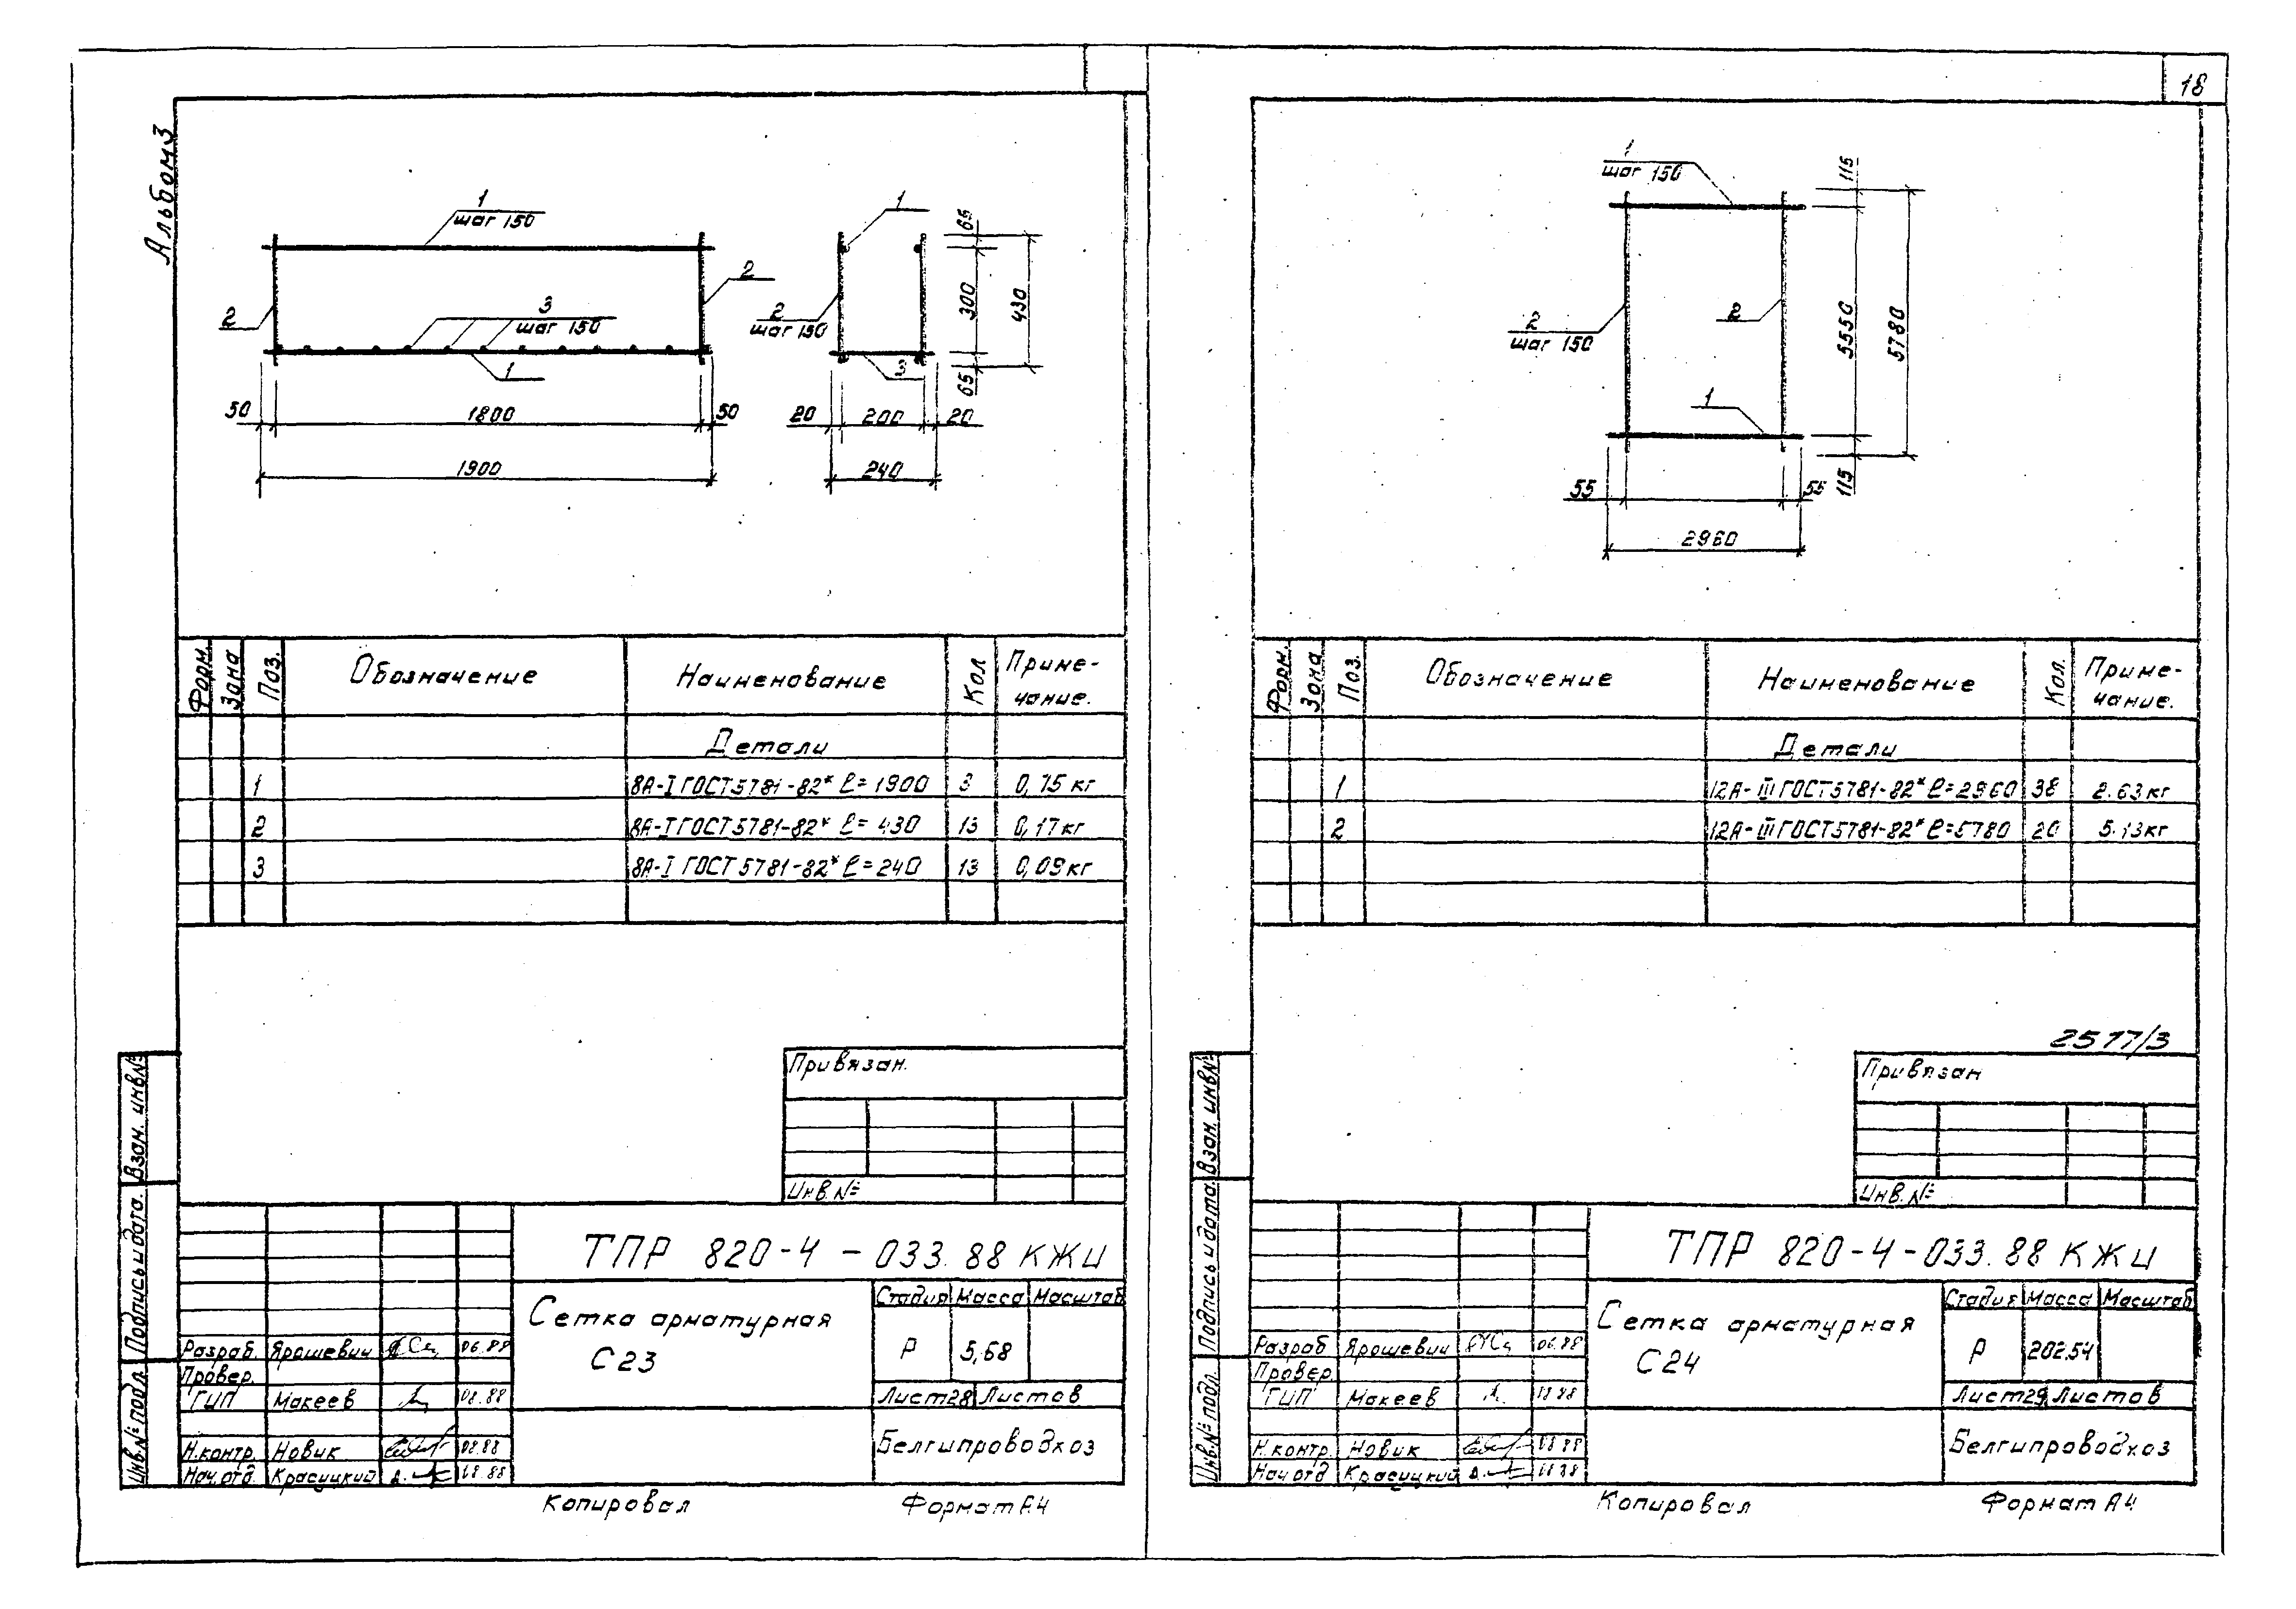 Альбом 3
1
шаг 150
2
2
3
шаг 150
1
50
1800
50
1900
1
2
шаг 150
3
65
300
430
65
20
200
20
240
Форм.
Зона
Поз.
Обозначение
Наименование
Кол
Приме-
чание.
Детали
1 8А-I ГОСТ 5781-82* ℓ=1900 3 0,75 кг
2 8А-I ГОСТ 5781-82* ℓ=430 13 0,17 кг
3 8А-I ГОСТ 5781-82* ℓ=240 13 0,09 кг
Привязан.
Инв.№
Взам. инв№
Подпись и дата.
Инв.№ подл.
ТПР 820-4-033.88 КЖИ
Сетка арматурная
С23
Стадия Масса Масштаб
Р 5,68
Лист 28 Листов
Белгипроводхоз
Разраб. Ярошевич 06.88
Провер.
ГИП Макеев 08.88
Н.контр. Новик 08.88
Нач.отд. Красуцкий 08.88
Копировал
Формат А4
18
1
шаг 150
2
шаг 150
2
1
115
5550
5780
115
55
55
2960
Форм.
Зона
Поз.
Обозначение
Наименование
Кол.
Приме-
чание.
Детали
1 12А-III ГОСТ 5781-82* ℓ=2960 38 2.63 кг
2 12А-III ГОСТ 5781-82* ℓ=5780 20 5.13 кг
2577/3
Привязан
Инв.№
Взам. инв№
Подпись и дата.
Инв.№ подл.
ТПР 820-4-033.88 КЖИ
Сетка арматурная
С24
Стадия Масса Масштаб
Р 202.54
Лист 29 Листов
Белгипроводхоз
Разраб Ярошевич 06.88
Провер
ГИП Макеев 08.88
Н.контр. Новик 08.88
Нач.отд Красуцкий 08.88
Копировал
Формат А4